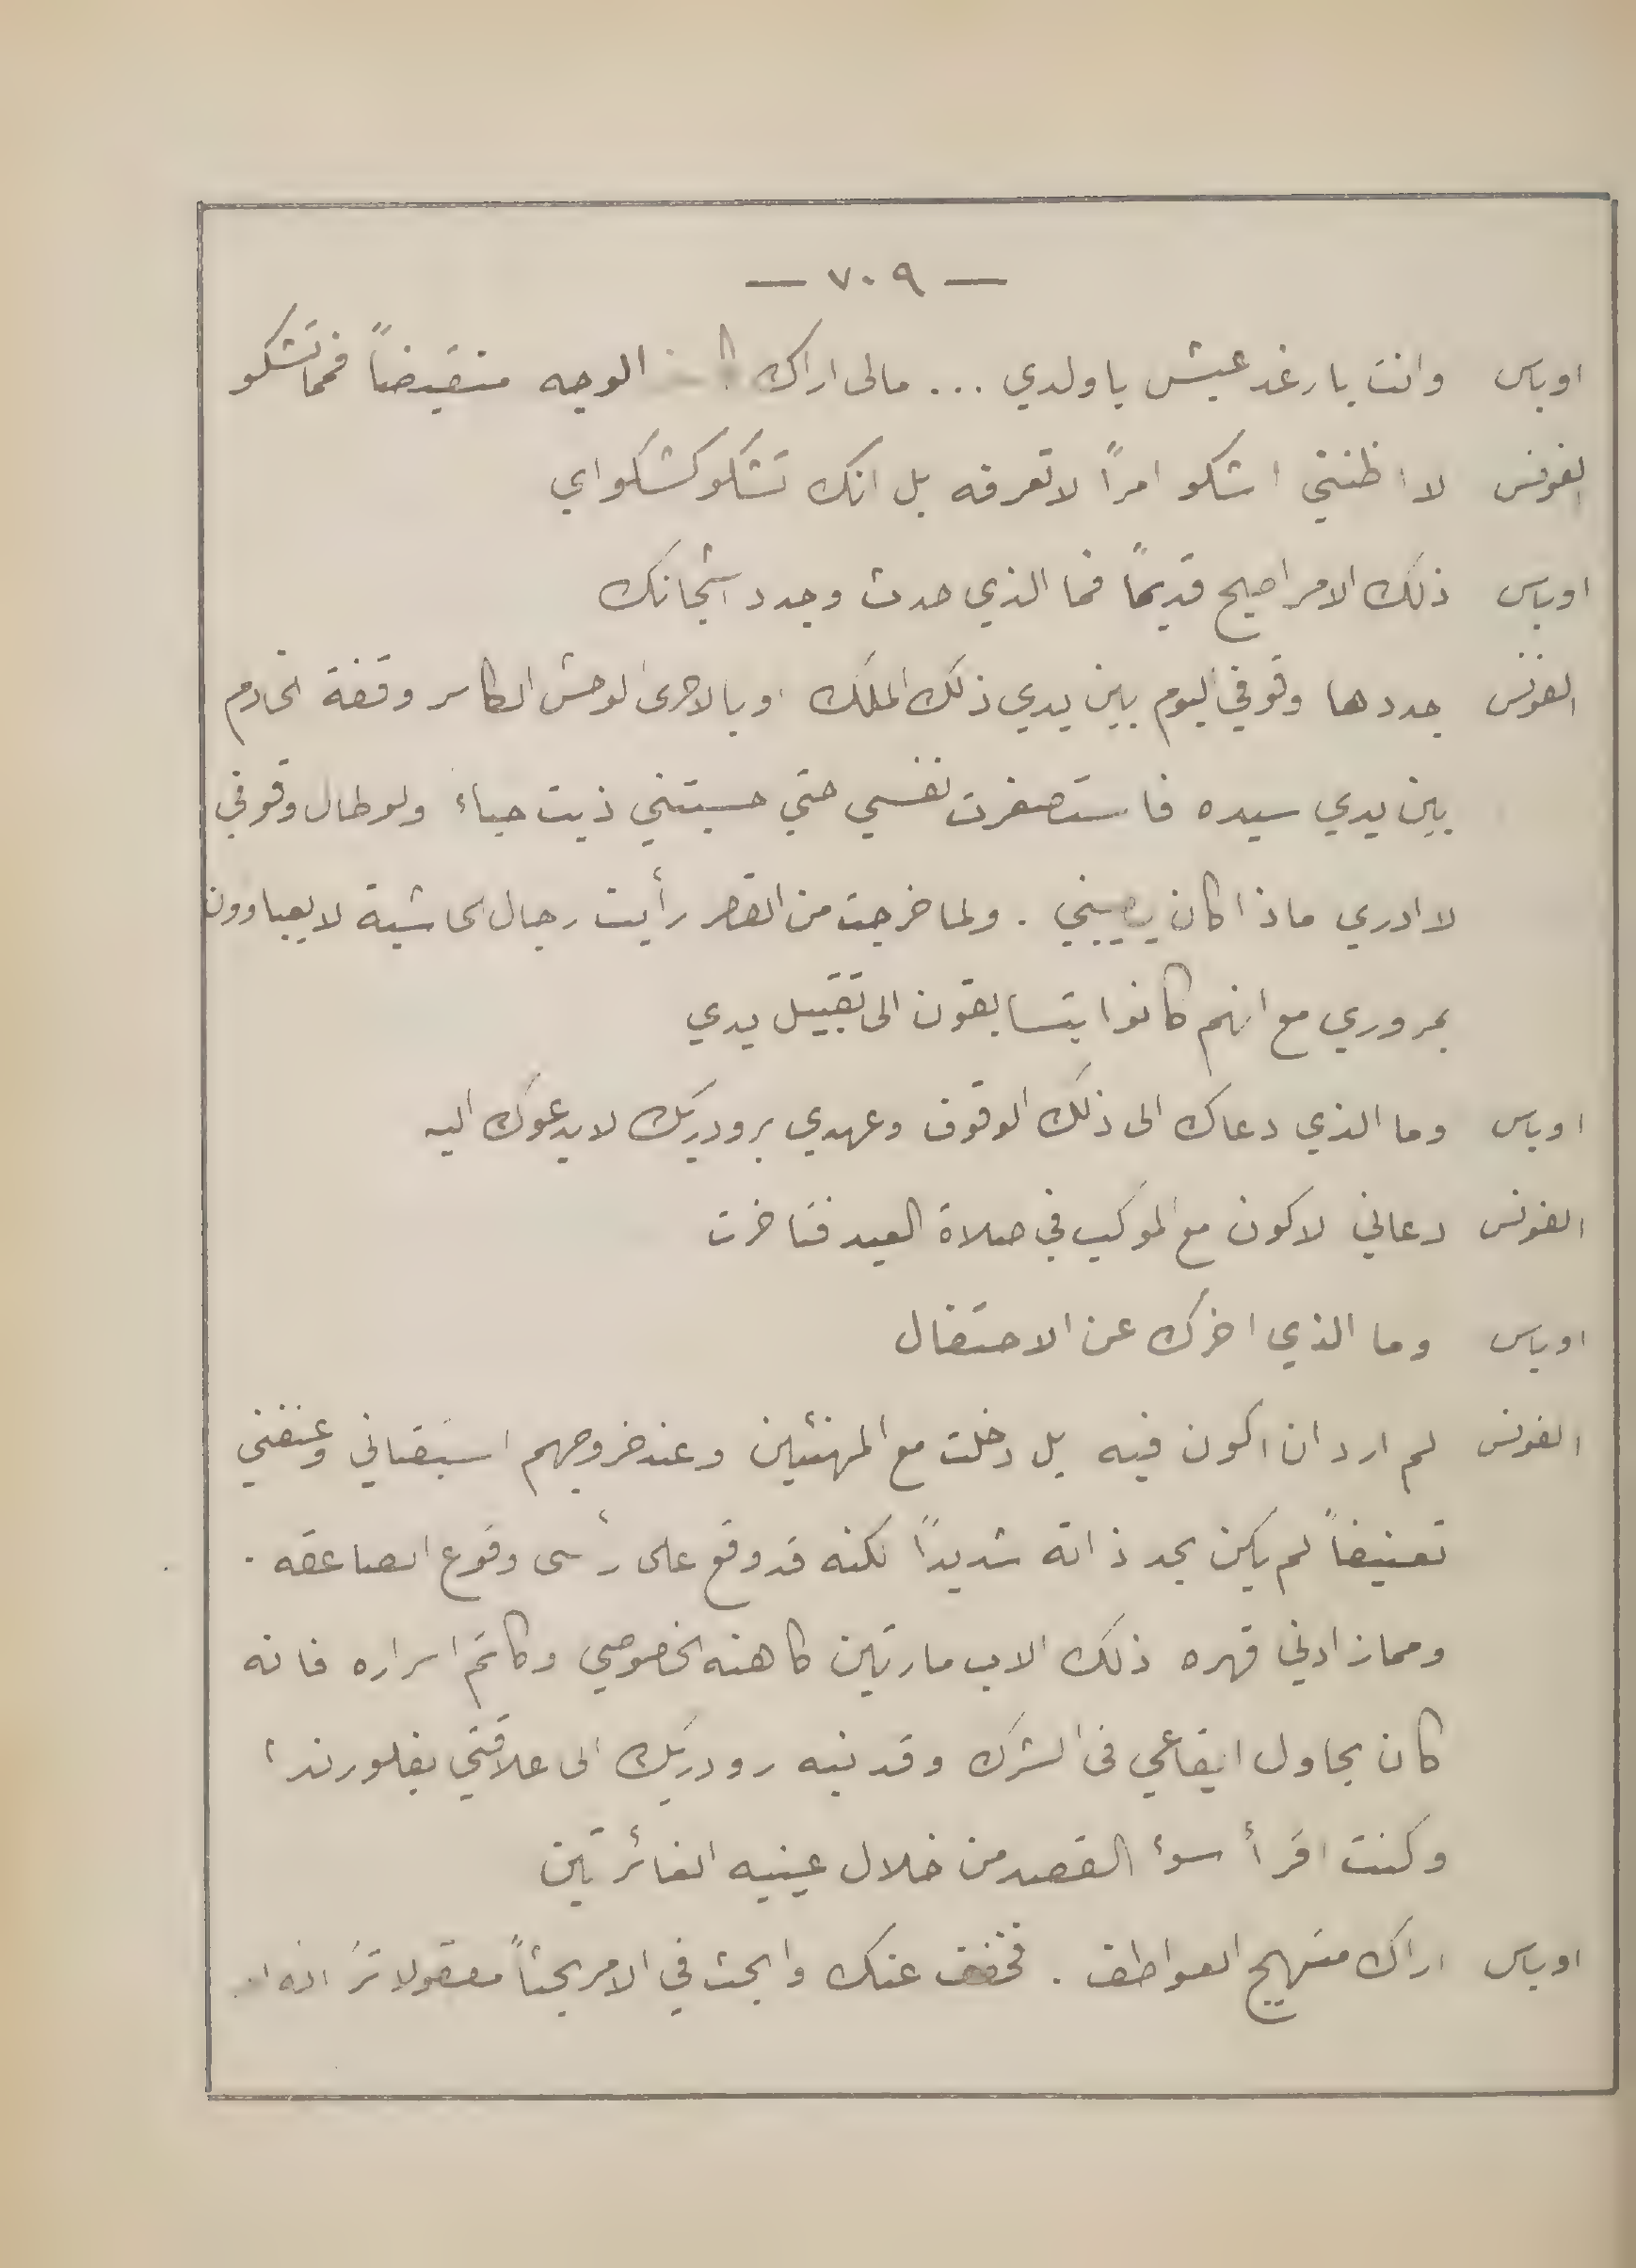 — ٧٠٩ —
اوباس وانت بارغد عيش ياولدي ... مالى اراك الوجه منقبضاً فمما تشكو
الفونس لا اظنني اشكو امراً لا تعرفه بل انك تشكو كشكواي
اوباس ذلك الامر اصبح قديماً فما الذي حدث وجدد اشجانك
الفونس جددها وقوفي اليوم بين يدي ذلك الملك او بالاحرى الوحش الكاسر وقفة الخادم
بين يدي سيده فاستصغرت نفسي حتي حسبتني ذبت حياء ولو طال وقوفي
لا ادري ماذا كان يصيبني . ولما خرجت من القصر رأيت رجال الحاشية لا يعباوون
بمروري مع انهم كانوا يتسابقون الى تقبيل يدي
اوباس وما الذي دعاك الى ذلك الوقوف وعهدي برودريك لا يدعوك اليه
الفونس دعاني لاكون مع الموكب في صلاة العيد فتاخرت
اوباس وما الذي اخرك عن الاحتفال
الفونس لم ارد ان اكون فيه بل دخلت مع المهنئين وعند خروجهم استبقاني وعنفني
تعنيفاً لم يكن بحد ذاته شديداً لكنه قد وقع على رأسى وقوع الصاعقه .
ومما زادني قهره ذلك الاب مارتين كاهنه الخصوصي وكاتم اسراره فانه
كان يحاول ايقاعي فى الشرك وقد نبه رودريك الى علاقتي بفلورندا
وكنت اقرأ سوء القصد من خلال عينيه الغائرتين
اوباس اراك متهيج العواطف . فخفف عنك وابحث في الامر بحثاً معقولا تر انه